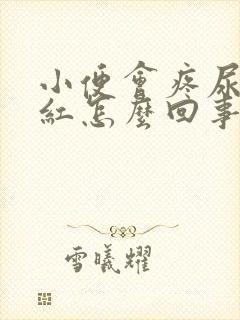 小便會疼尿
紅怎麼回事
雪曦耀